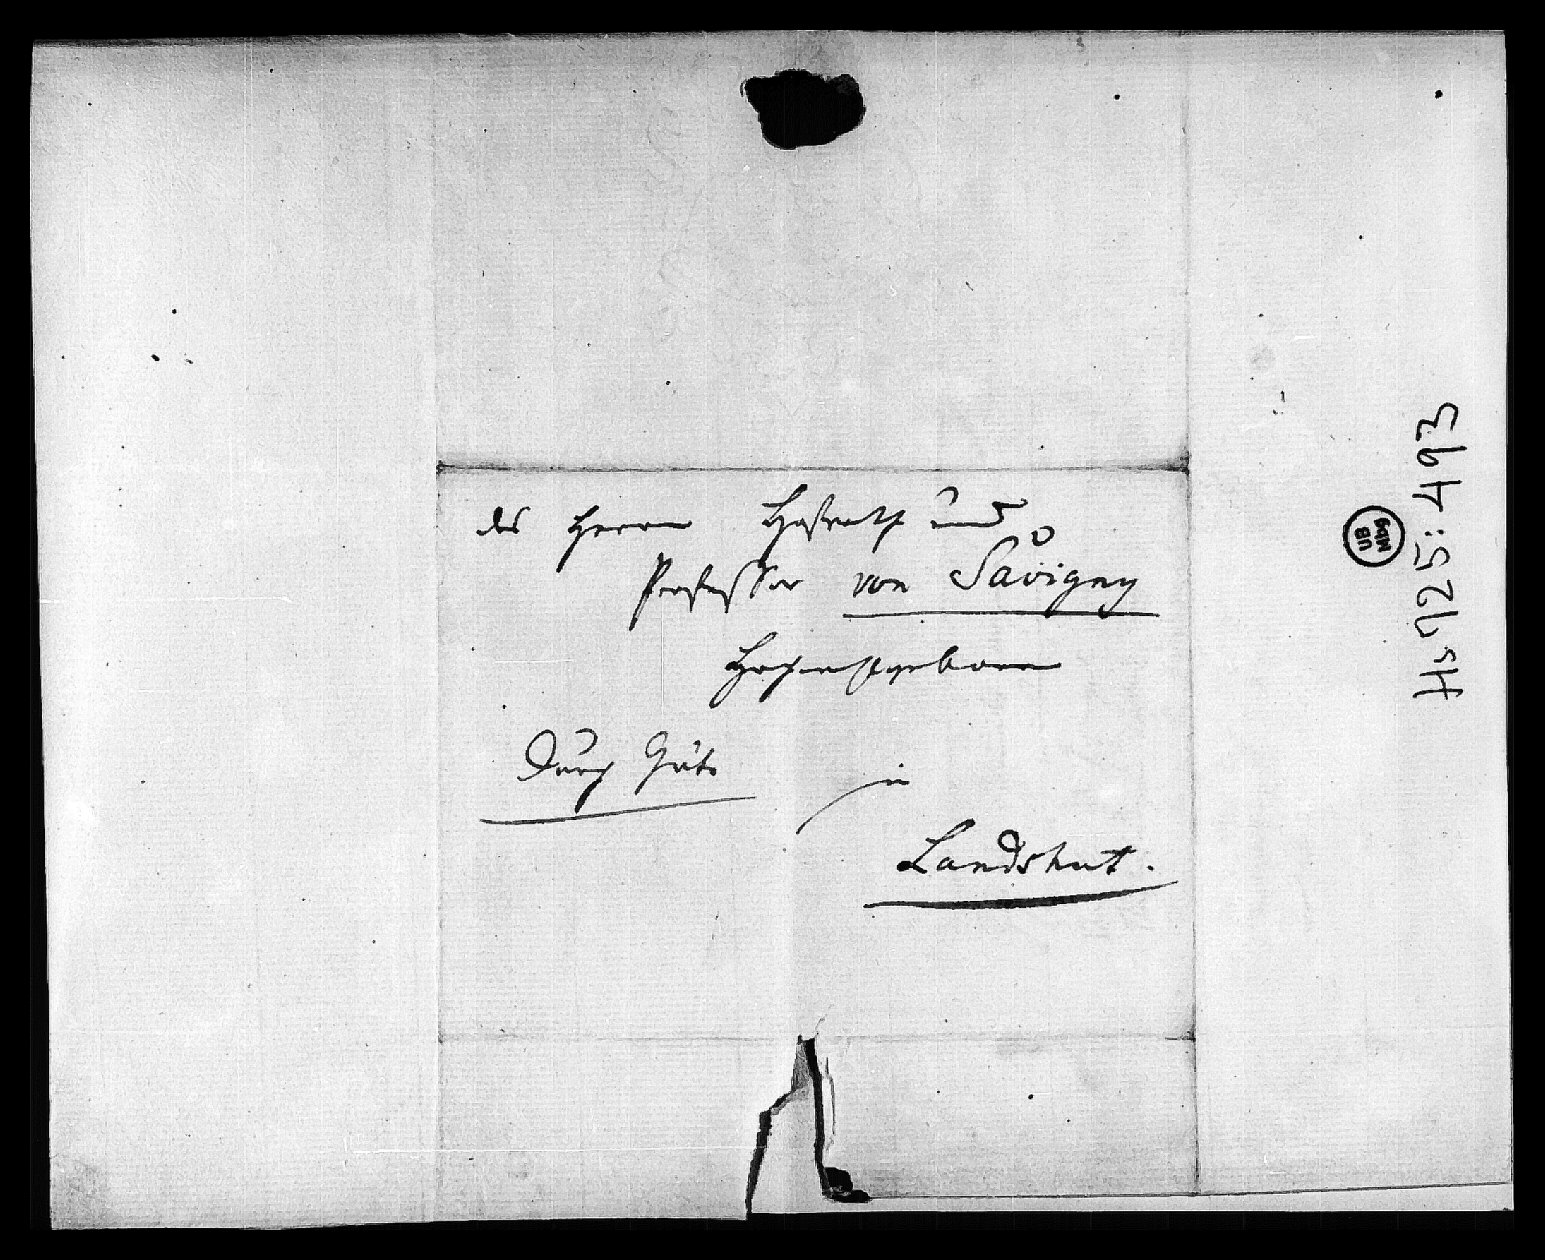 des Herrn Hofrath und
Professor von Savigny
Hochwohlgeboren
Durch Güte
in
Landshut.
Hs 725:493
UB
Mbg